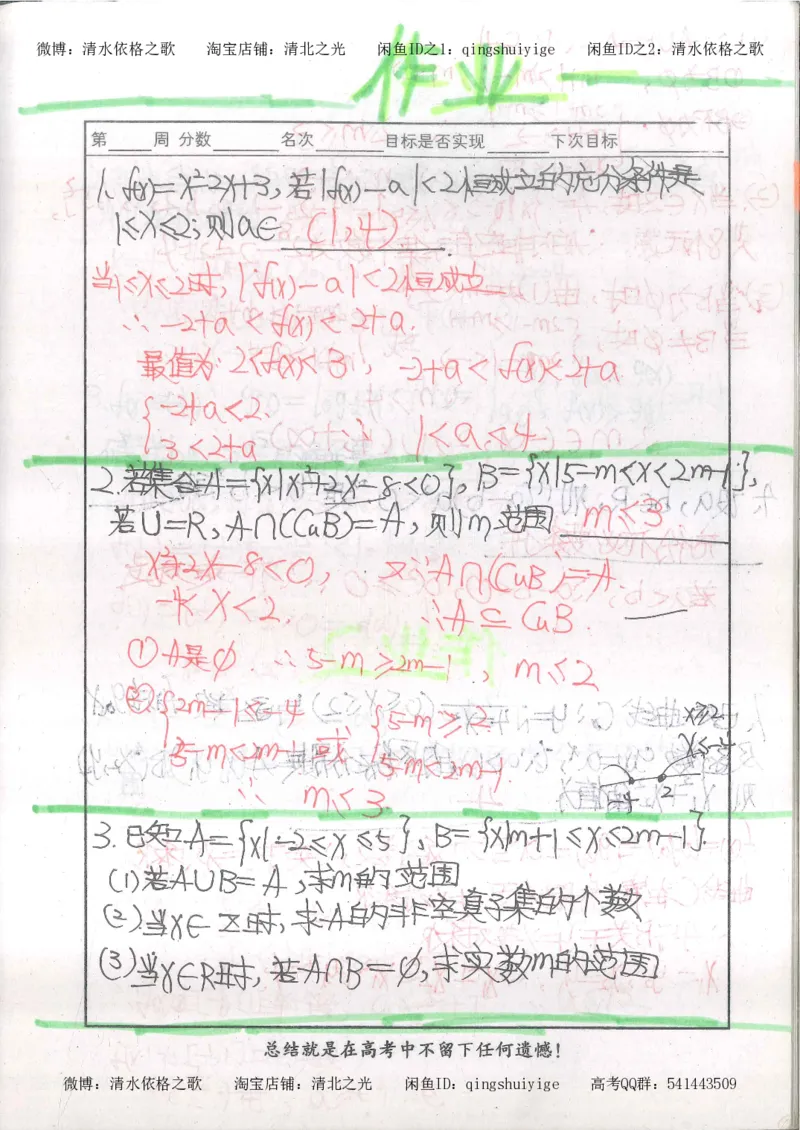 微博：清水依格之歌 淘宝店铺：清北之光 闲鱼ID之1：qingshuiyige 闲鱼ID之2：清水依格之歌
作业
第____周 分数______ 名次______ 目标是否实现______ 下次目标______
1、f(x)=x²-2x+3，若|f(x)-a|<2恒成立的充分条件是
1≤x≤2；则a∈ (1,4) .
当1≤x≤2时，|f(x)-a|<2恒成立
∴ -2+a<f(x)<2+a.
最值为: 2≤f(x)≤3, -2+a<f(x)<2+a
{-2+a<2
{3<2+a ∴ 1<a<4
2.若集合A={x|x²+2x-8<0}, B={x|5-m<x<2m-1},
若U=R, A∩(CuB)=A, 则m范围 m≤3
x²+2x-8<0, 又∵A∩(CuB)=A.
-4<x<2. ∴A⊆CuB.
① 是∅ ∴5-m≥2m-1, m≤2
②{2m-1≤-4 {5-m≥2 x≥2
{5-m<2m-1 或 {5-m<2m-1. x≤-4
∴ m≤3. -4 2
3.已知A={x|-2≤x≤5}, B={x|m+1≤x≤2m-1}.
(1)若A∪B=A,求m的范围
(2)当x∈Z时,求A的非空真子集的个数
(3)当x∈R时,若A∩B=∅,求实数m的范围
总结就是在高考中不留下任何遗憾！
微博：清水依格之歌 淘宝店铺：清北之光 闲鱼ID：qingshuiyige 高考QQ群：541443509